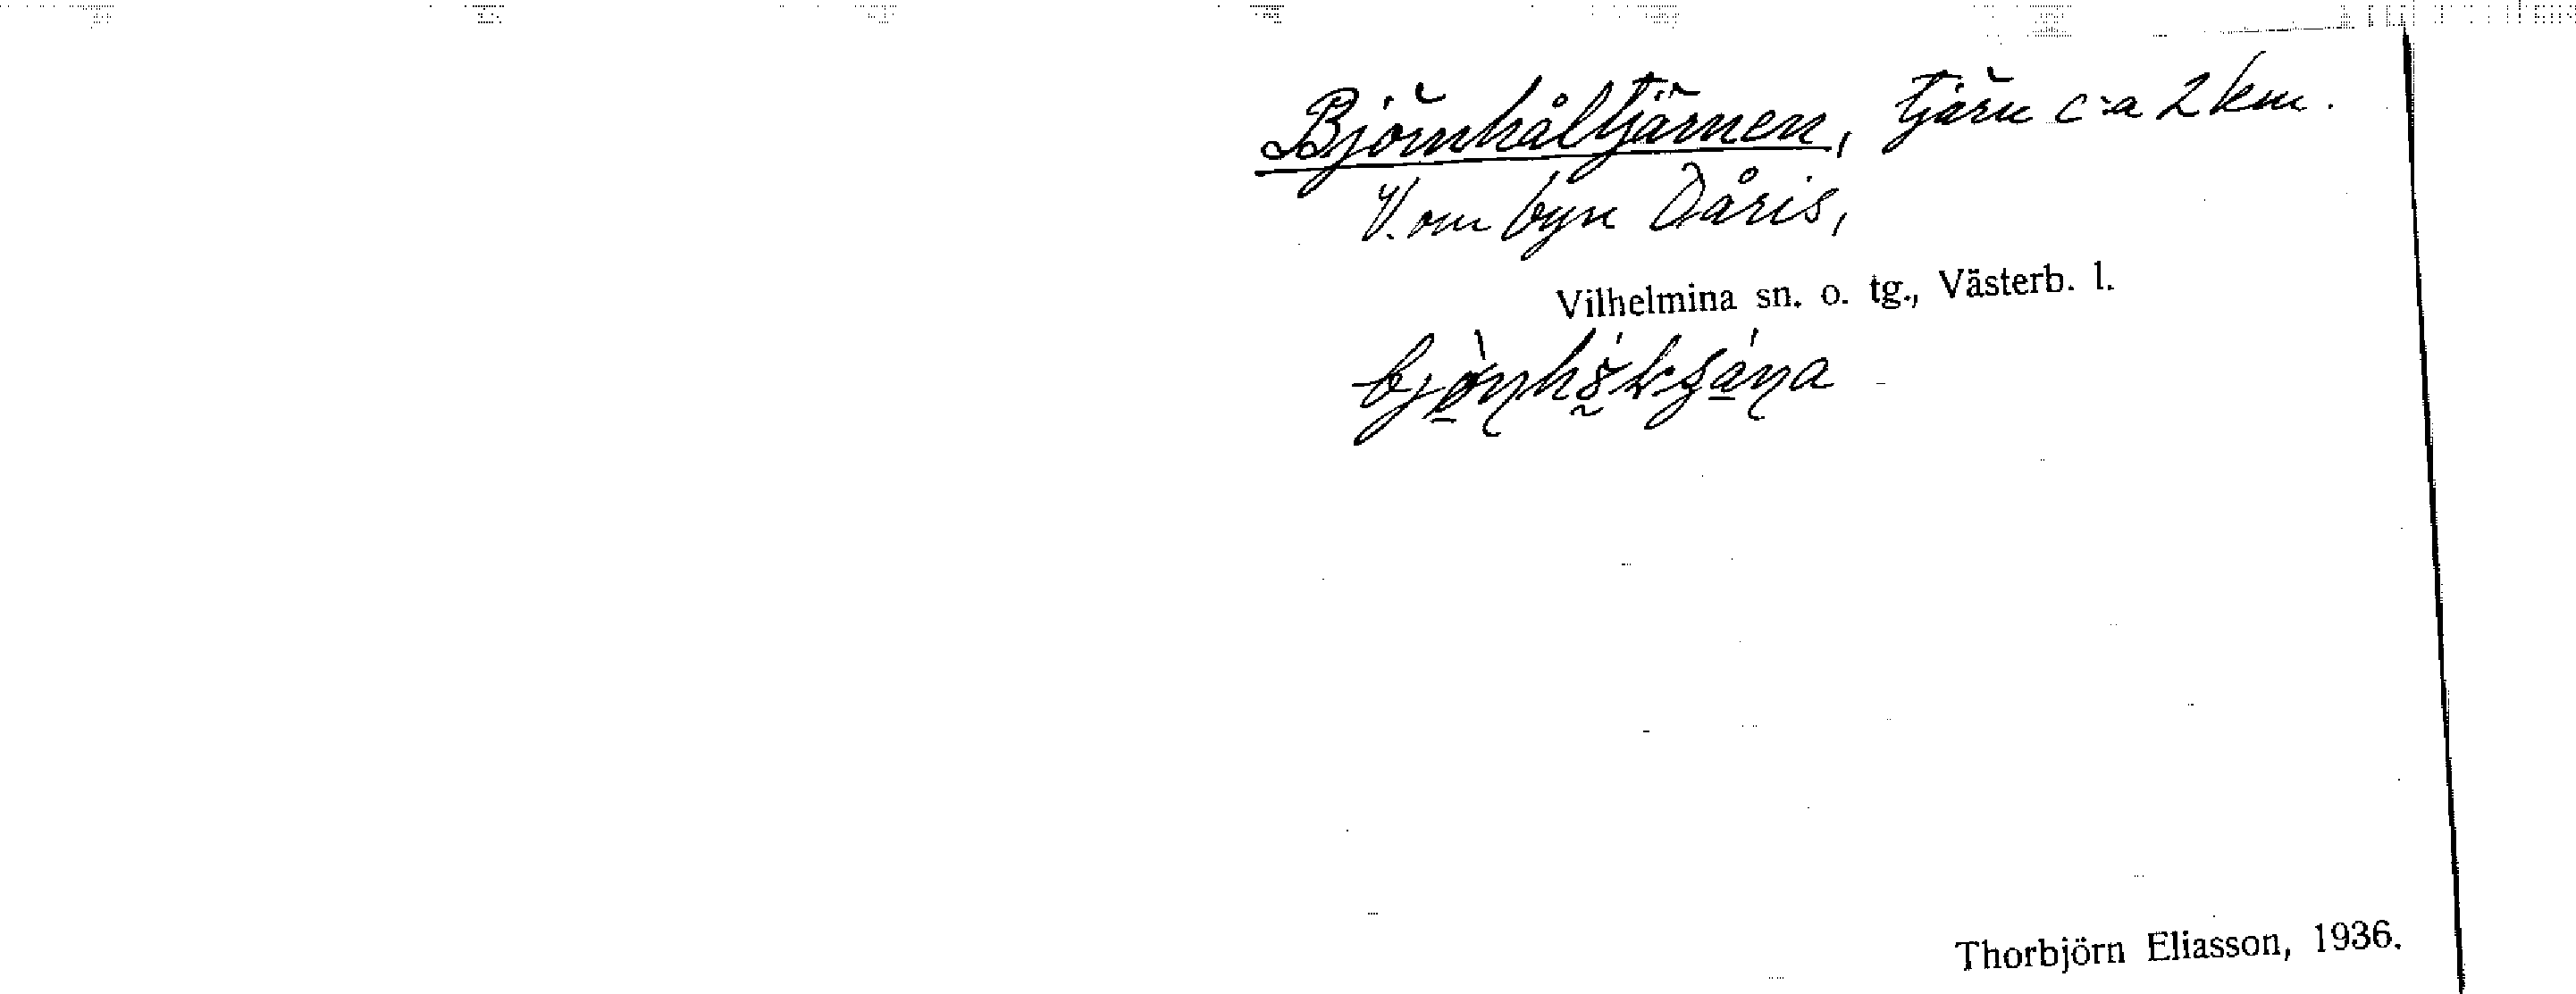 Björnhåltjärnen, tjärn c:a 2 km.
V. om byn Dåris,
Vilhelmina sn. o. tg., Västerb. l.
Thorbjörn Eliasson, 1936.